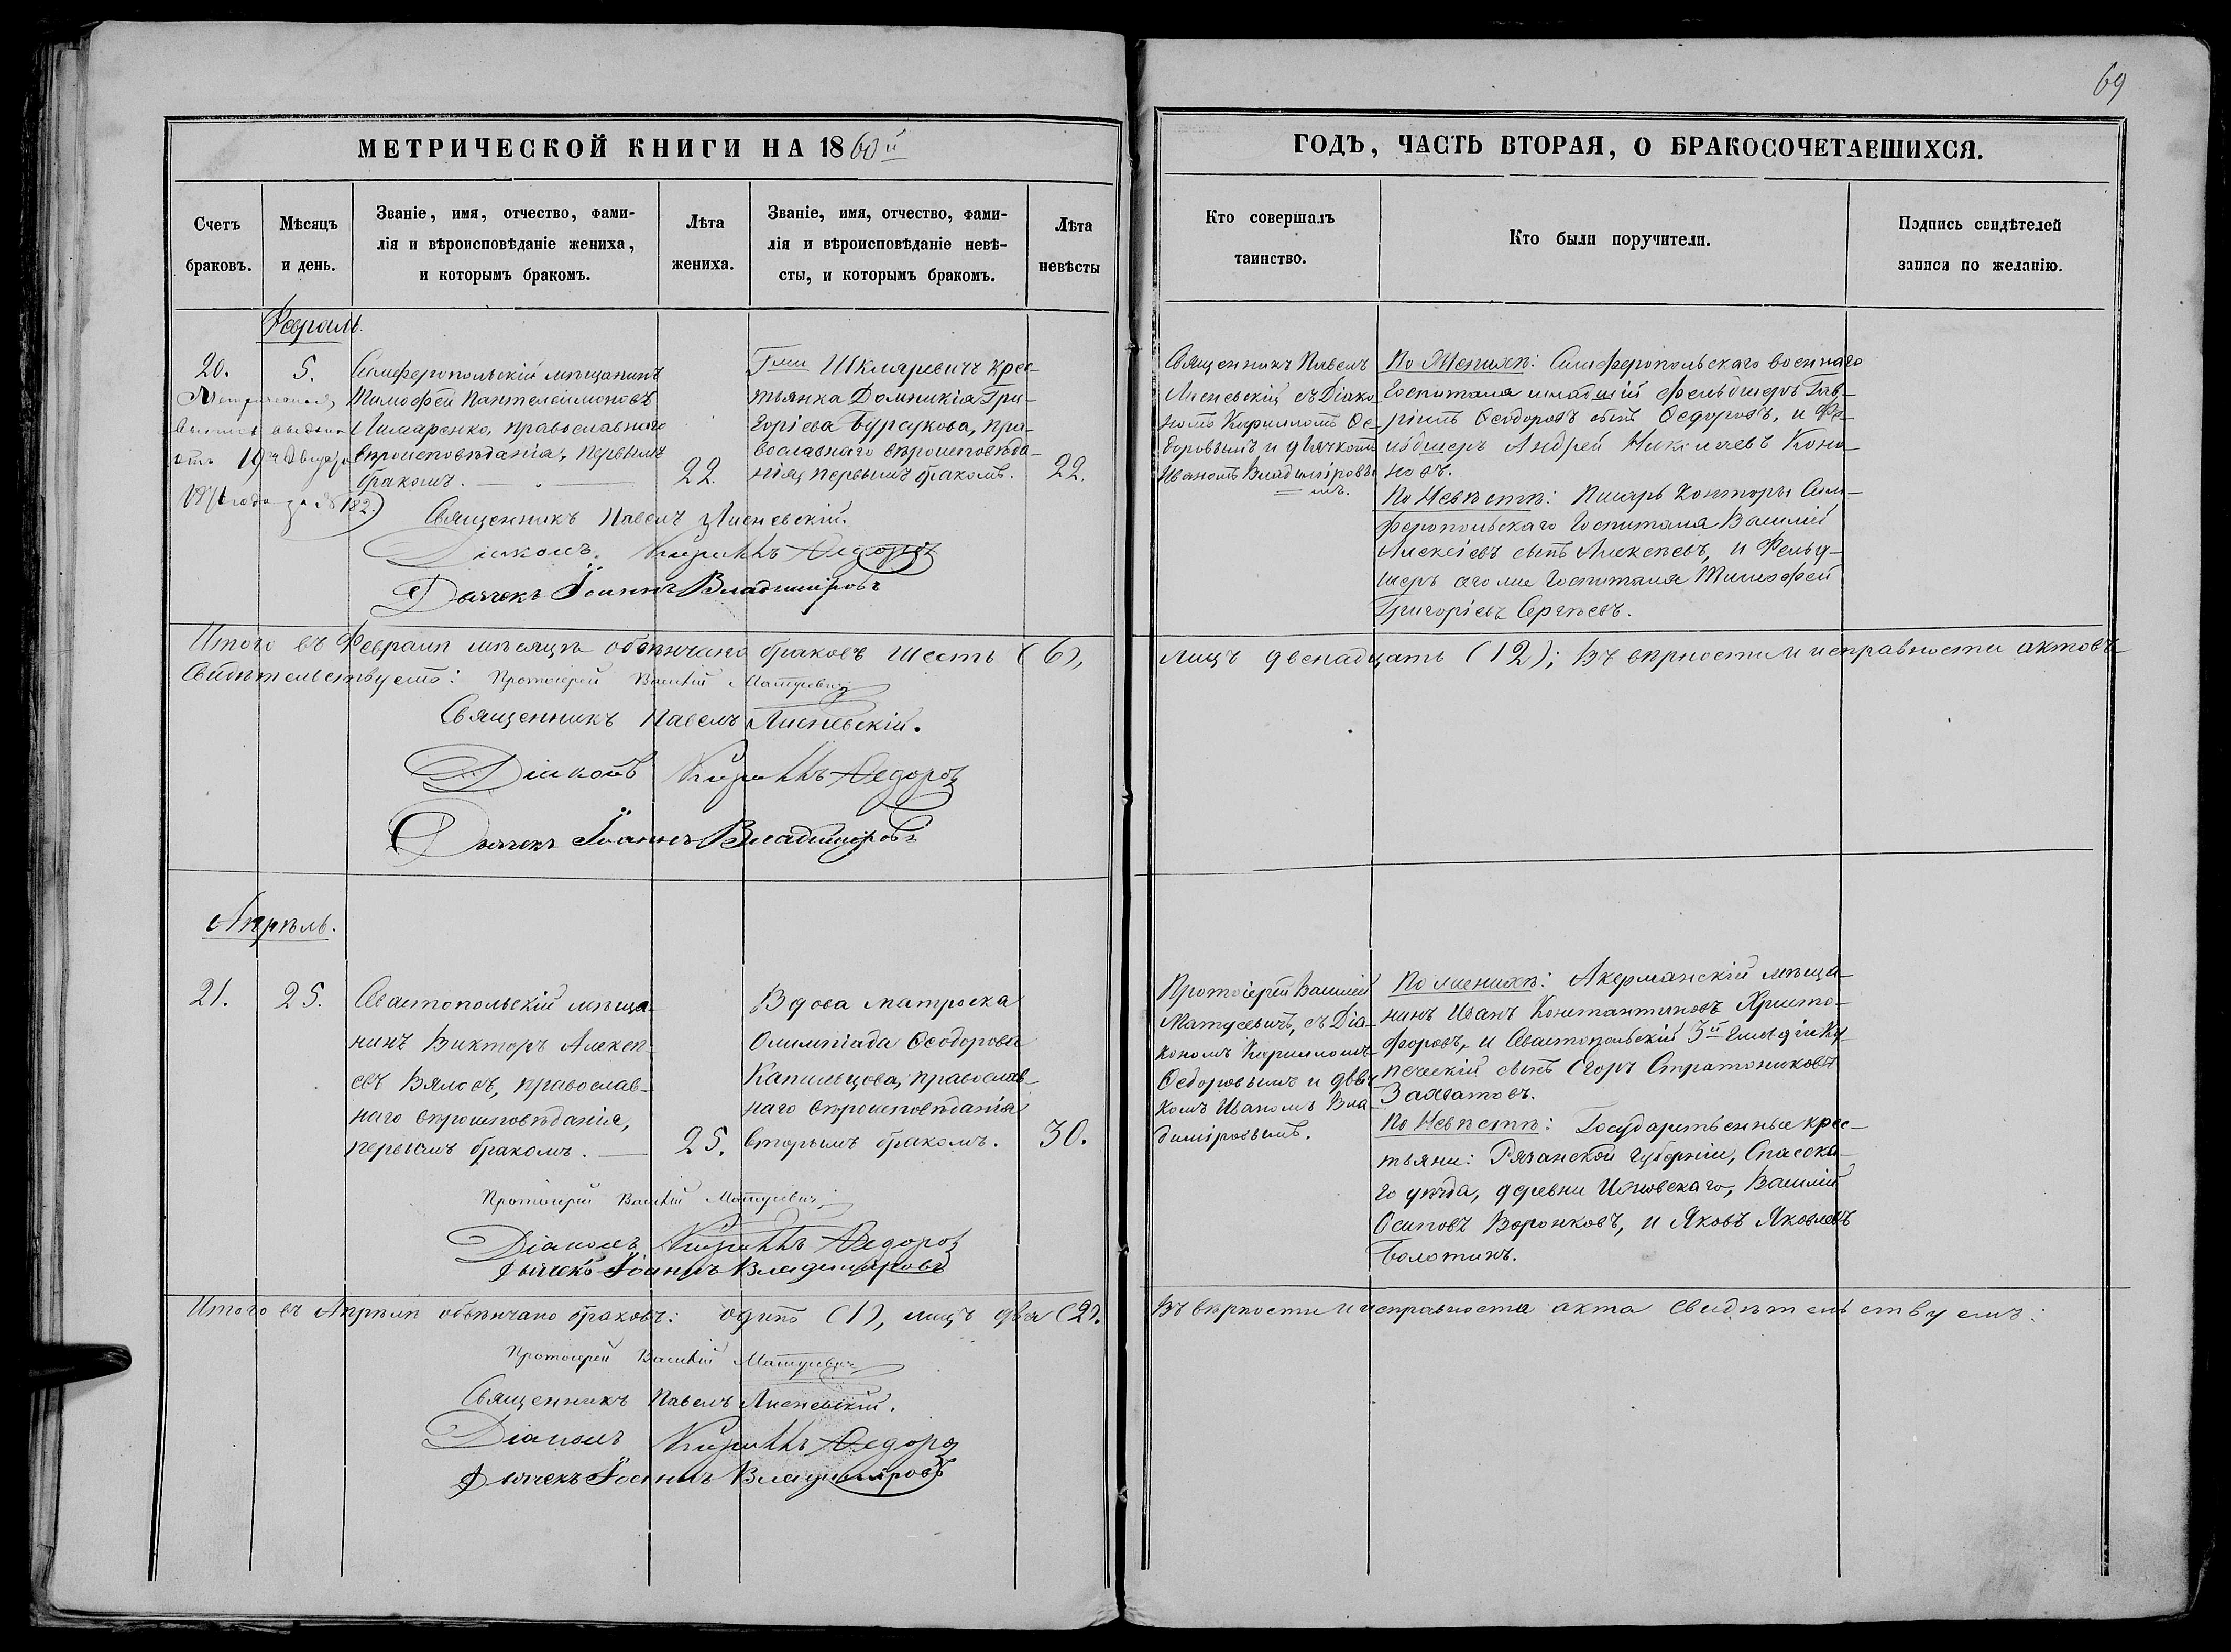 69
МЕТРИЧЕСКОЙ КНИГИ НА 1860й
ГОДЪ, ЧАСТЬ ВТОРАЯ, О БРАКОСОЧЕТАВШИХСЯ.
Счетъ
браковъ.
Мѣсяцъ
и день.
Званіе, имя, отчество, фами-
лія и вѣроисповѣданіе жениха,
и которымъ бракомъ.
Лѣта
жениха.
Званіе, имя, отчество, фами-
лія и вѣроисповѣданіе невѣ-
сты, и которымъ бракомъ.
Лѣта
невѣсты
Кто совершалъ
таинство.
Кто были поручители.
Подпись свидѣтелей
записи по желанію.
Февраль.
20.
Метрическая
отъ 19го
1871 года за № 182.)
5.
Симферопольскій мѣщанинъ
Тимофей Пантелеймоновъ
православнаго
вѣроисповѣданія, первымъ
бракомъ.
22.
Г-жи Шкляревичъ крес-
тьянка Домникія Гри-
горіева Бурсукова, пра-
вославнаго вѣроисповѣда-
нія, первымъ бракомъ.
22.
Священникъ Павелъ
Лисневскій съ Діако-
номъ Кирилломъ Ѳе-
доровымъ и дьячкомъ
Иваномъ Владиміровы-
мъ.
По Женихѣ: Симферопольскаго военнаго
Госпиталя младшій фельдшеръ Гав-
ріилъ Ѳеодоровъ сынъ Ѳедоровъ, и Фе-
льдшеръ Андрей Николаевъ Коно-
новъ.
По Невѣстѣ: Писарь Конторы Сим-
феропольскаго Госпиталя Василій
Алексіевъ сынъ Алексѣевъ, и Фельд-
шеръ того же Госпиталя Тимофей
Григоріевъ Сергѣевъ.
Священникъ Павелъ Лисневскій.
Діаконъ Кириллъ Ѳедоровъ
Дьячекъ Іоаннъ Владиміровъ
Итого въ Февралѣ мѣсяцѣ обвѣнчано браковъ шесть (6),
лицъ двенадцать (12); Въ вѣрности и исправности актовъ
Свидѣтельствуетъ: Протоіерей Василій Матусевичъ
Священникъ Павелъ Лисневскій.
Діаконъ Кириллъ Ѳедоровъ
Дьячекъ Іоаннъ Владиміровъ
Апрѣль.
21.
25.
Севастопольскій мѣща-
нинъ Викторъ Алексѣ-
евъ Вяловъ, православ-
наго вѣроисповѣданія,
первымъ бракомъ.
25.
Вдова матроска
Олимпіада Ѳеодорова
Капильцова, православ-
наго вѣроисповѣданія
вторымъ бракомъ.
30.
Протоіерей Василій
Матусевичъ, съ Діа-
кономъ Кирилломъ
Ѳедоровымъ и дьяч-
комъ Иваномъ Вла-
диміровымъ.
По женихѣ: Акерманскій мѣща-
нинъ Иванъ Константиновъ Христо-
форовъ, и Севастопольскій 3й Гильдіи Ку-
печескій сынъ Егоръ Стратониковъ
Захватовъ.
По Невѣстѣ: Государственные крес-
тьяни: Рязанской Губерніи, Спасска-
го уѣзда, деревни Василій
Осиповъ Воронковъ, и Яковъ Яковлевъ
Болотинъ.
Протоіерей Василій Матусевичъ
Діаконъ Кириллъ Ѳедоровъ
Дьячекъ Іоаннъ Владиміровъ
Итого въ Апрѣлѣ обвѣнчано браковъ: одинъ (1), лицъ два (2).
Въ вѣрности и исправности акта свидѣтельствуемъ:
Протоіерей Василій Матусевичъ
Священникъ Павелъ Лисневскій.
Діаконъ Кириллъ Ѳедоровъ
Дьячекъ Іоаннъ Владиміровъ